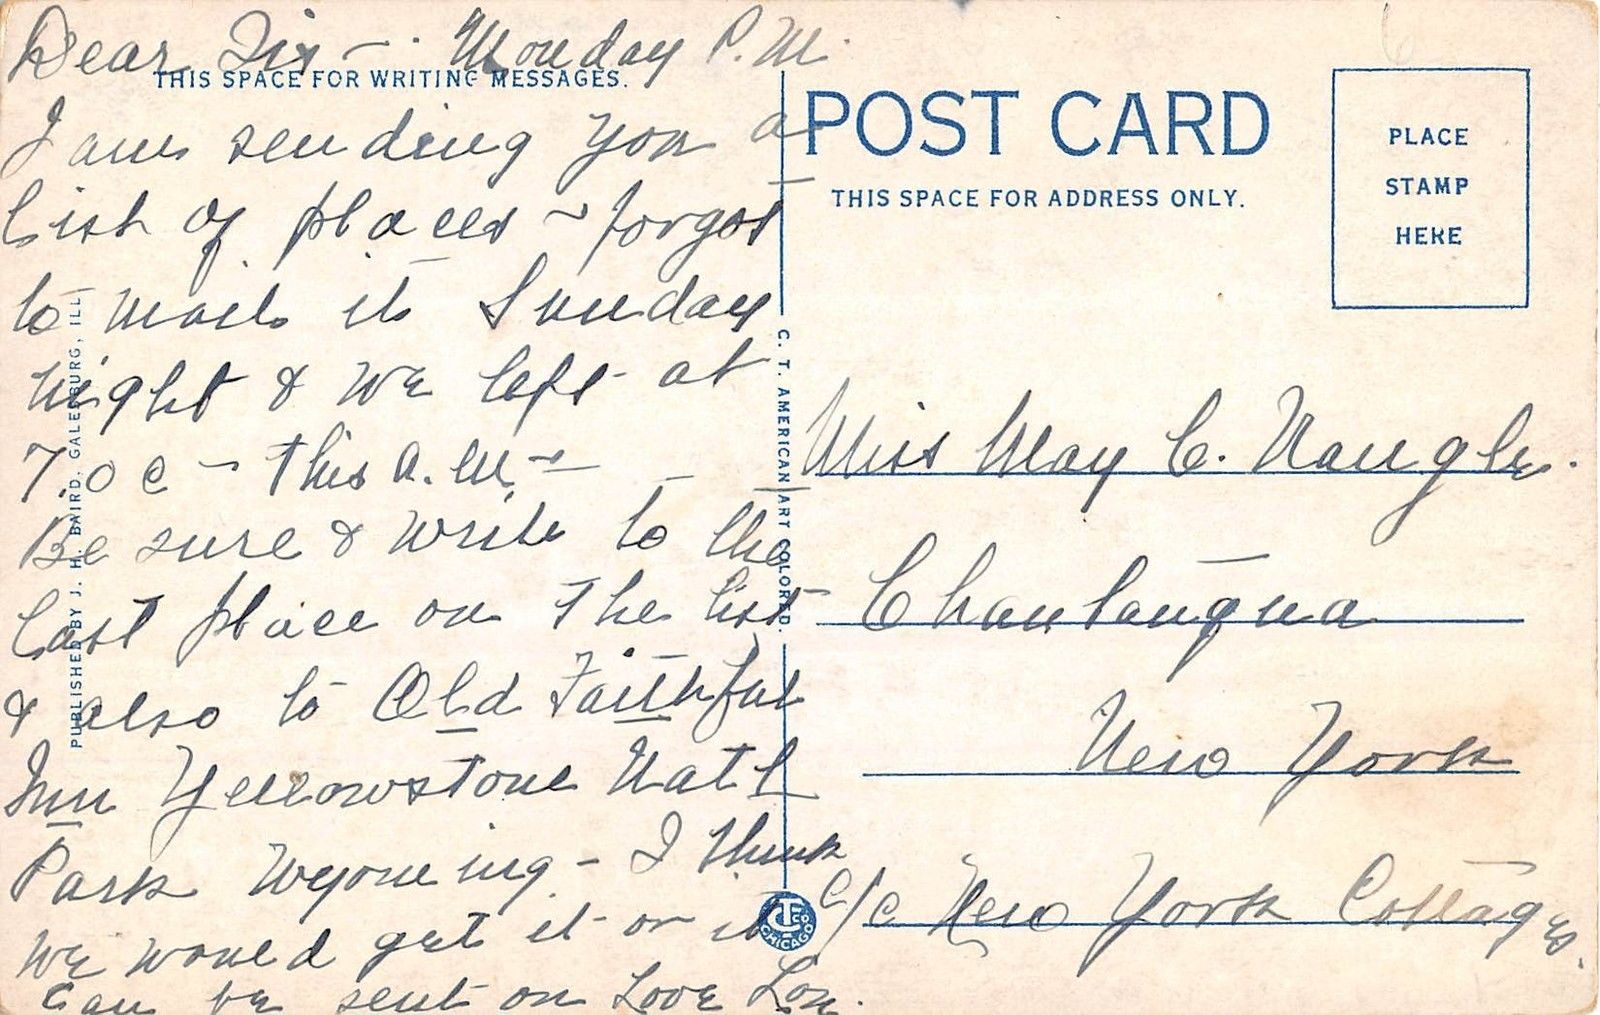 Dear Sis - Monday P.M.
THIS SPACE FOR WRITING MESSAGES.
I am sending you a
list of places - forgot
to mail it Sunday
night & we left at
7.0 c - this a.m. -
Be sure & write to the
last place on the list
& also to Old Faithful
Inn Yellowstone Nat'l
Park Wyoming - I think
we would get it or it
can be sent on Love Lou.
PUBLISHED BY J. H. BAIRD, GALESBURG, ILL.
C. T. AMERICAN ART COLORED.
CTCO
CHICAGO
POST CARD
THIS SPACE FOR ADDRESS ONLY.
PLACE
STAMP
HERE
Miss May C. Naugle.
Chautauqua
New York
c/c New York Cottages.